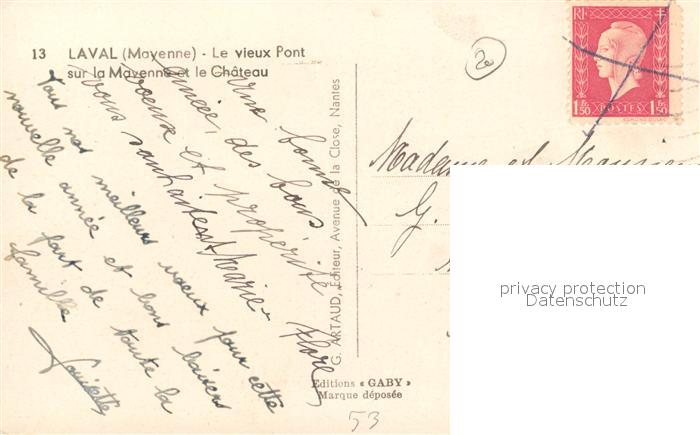 13 LAVAL (Mayenne) - Le vieux Pont
sur la Mayenne et le Château
Une bonne
Année, des bons
voeux et
vous souhaitent Marie-
Flore
Tous nos meilleurs voeux pour cette
nouvelle année et bons baisers
de la part de toute la
famille
G. ARTAUD, Editeur, Avenue de la Close, Nantes
Editions « GABY »
Marque déposée
53
2e
RF
1 Fr. 50 POSTES 1 Fr. 50
Madame et Monsieur
G.
privacy protection
Datenschutz